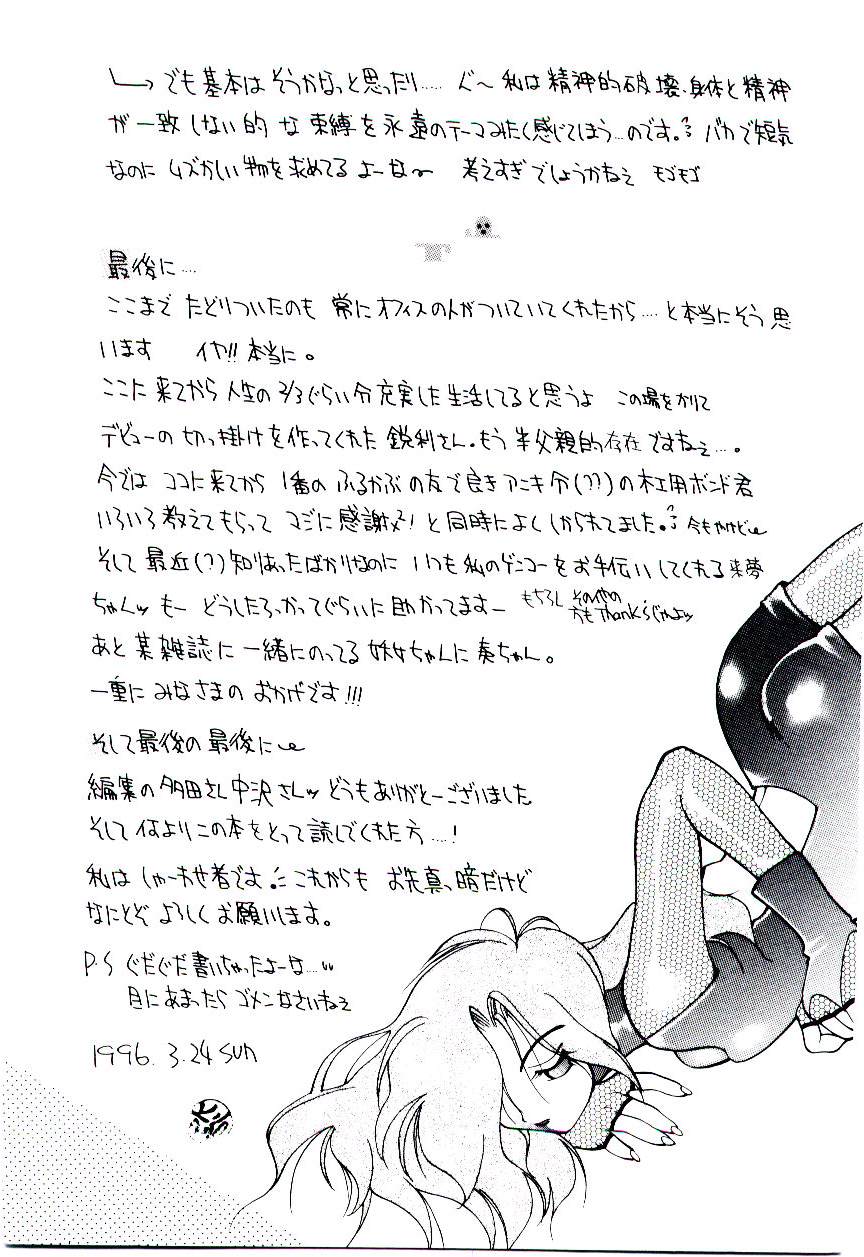 でも基本はそうかなっと思ったり…… ぐ〜 私は精神的破壊、身体と精神
が一致しない的な束縛を永遠のテーマみたく感じてしまう…のです。 バカで短気
なのに ムズかしい物を求めてるよーな〜 考えすぎでしょうかねえ モゴモゴ
最後に…
ここまで たどりついたのも 常にオフィスの人がついていてくれたから…. と本当にそう思
います イヤ!! 本当に。
ここに来てから人生の2/3ぐらい分充実した生活してると思うよ この場をかりて
デビューの切っ掛けを作ってくれた鋭利さん。もう半父親的存在ですねぇ…。
今では ココに来てから 1番の ふるかぶの友で良きアニキ分(??)の木工用ボンド君
いろいろ教えてもらって マジに感謝! と同時によくしかられてました。 今もやけど
そして 最近(?)知りあったばかりなのに いつも私のゲンコーをお手伝いしてくれる来夢
ちゃんッ もー どうしたろかってぐらいに助かってますー もちろん そのへやの
方もThank'sじゃよッ
あと某雑誌に一緒にのってる ちゃんに奏ちゃん。
一重に みなさまの おかげです!!!
そして最後の最後に
編集の多田さん中沢さんッ どうもありがとーございました
そして何よりこの本をとって読んでくれた方….!
私は しゃーわせ者です。 これからも お先真っ暗だけど
なにとぞ よろしく お願いします。
P.S ぐだぐだ書いちゃったよーな…
目にあまったら ゴメンなさいねぇ
1996. 3.24 SUN